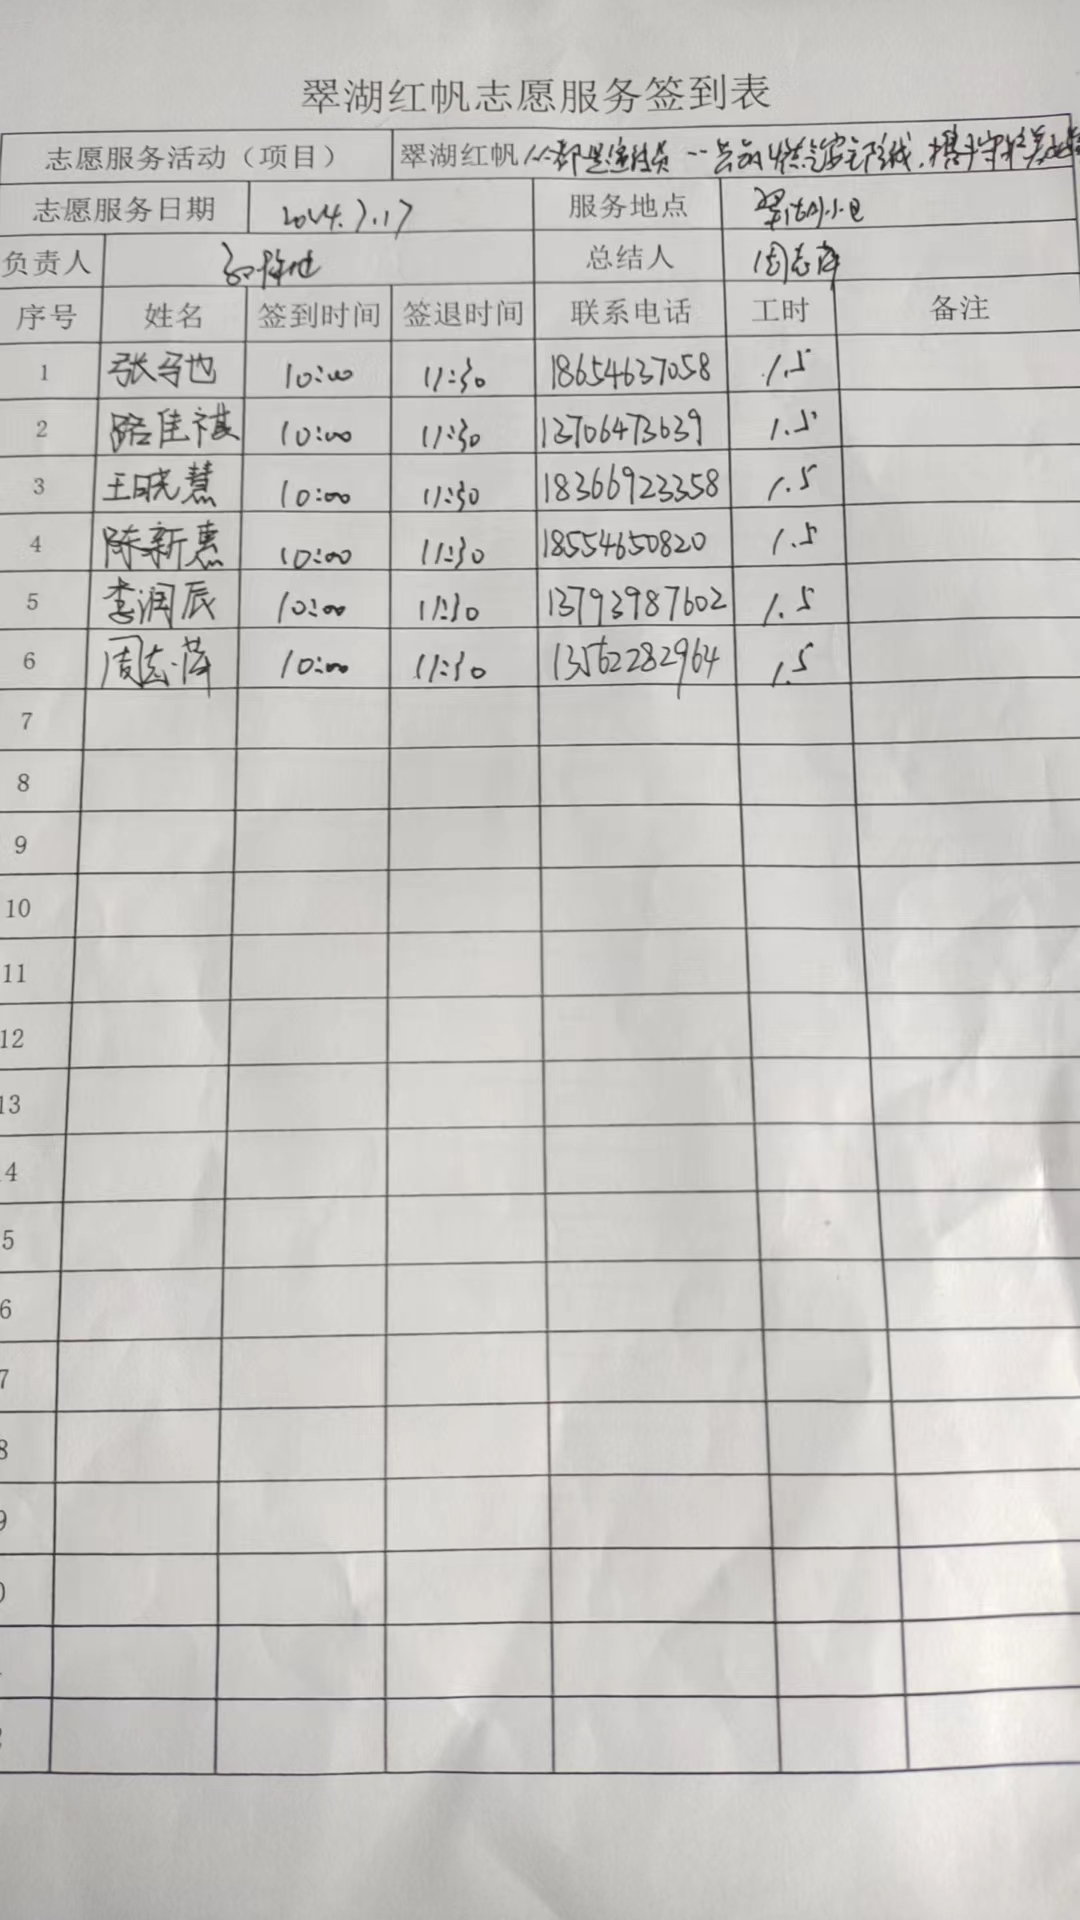 翠湖红帆志愿服务签到表
志愿服务活动（项目） 翠湖红帆 人人都是宣传员 一共筑燃气安全防线，携手守护美
志愿服务日期 2024.7.17 服务地点 翠湖小区
负责人 总结人 周志萍
序号 姓名 签到时间 签退时间 联系电话 工时 备注
1 张马也 10:00 11:30 18654637058 1.5
2 路佳祺 10:00 11:30 13706473639 1.5
3 王晓慧 10:00 11:30 18366923358 1.5
4 陈新惠 10:00 11:30 18554650820 1.5
5 李润辰 10:00 11:30 13793987602 1.5
6 周志萍 10:00 11:30 13562282964 1.5
7
8
9
10
11
12
13
4
5
6
7
8
9
0